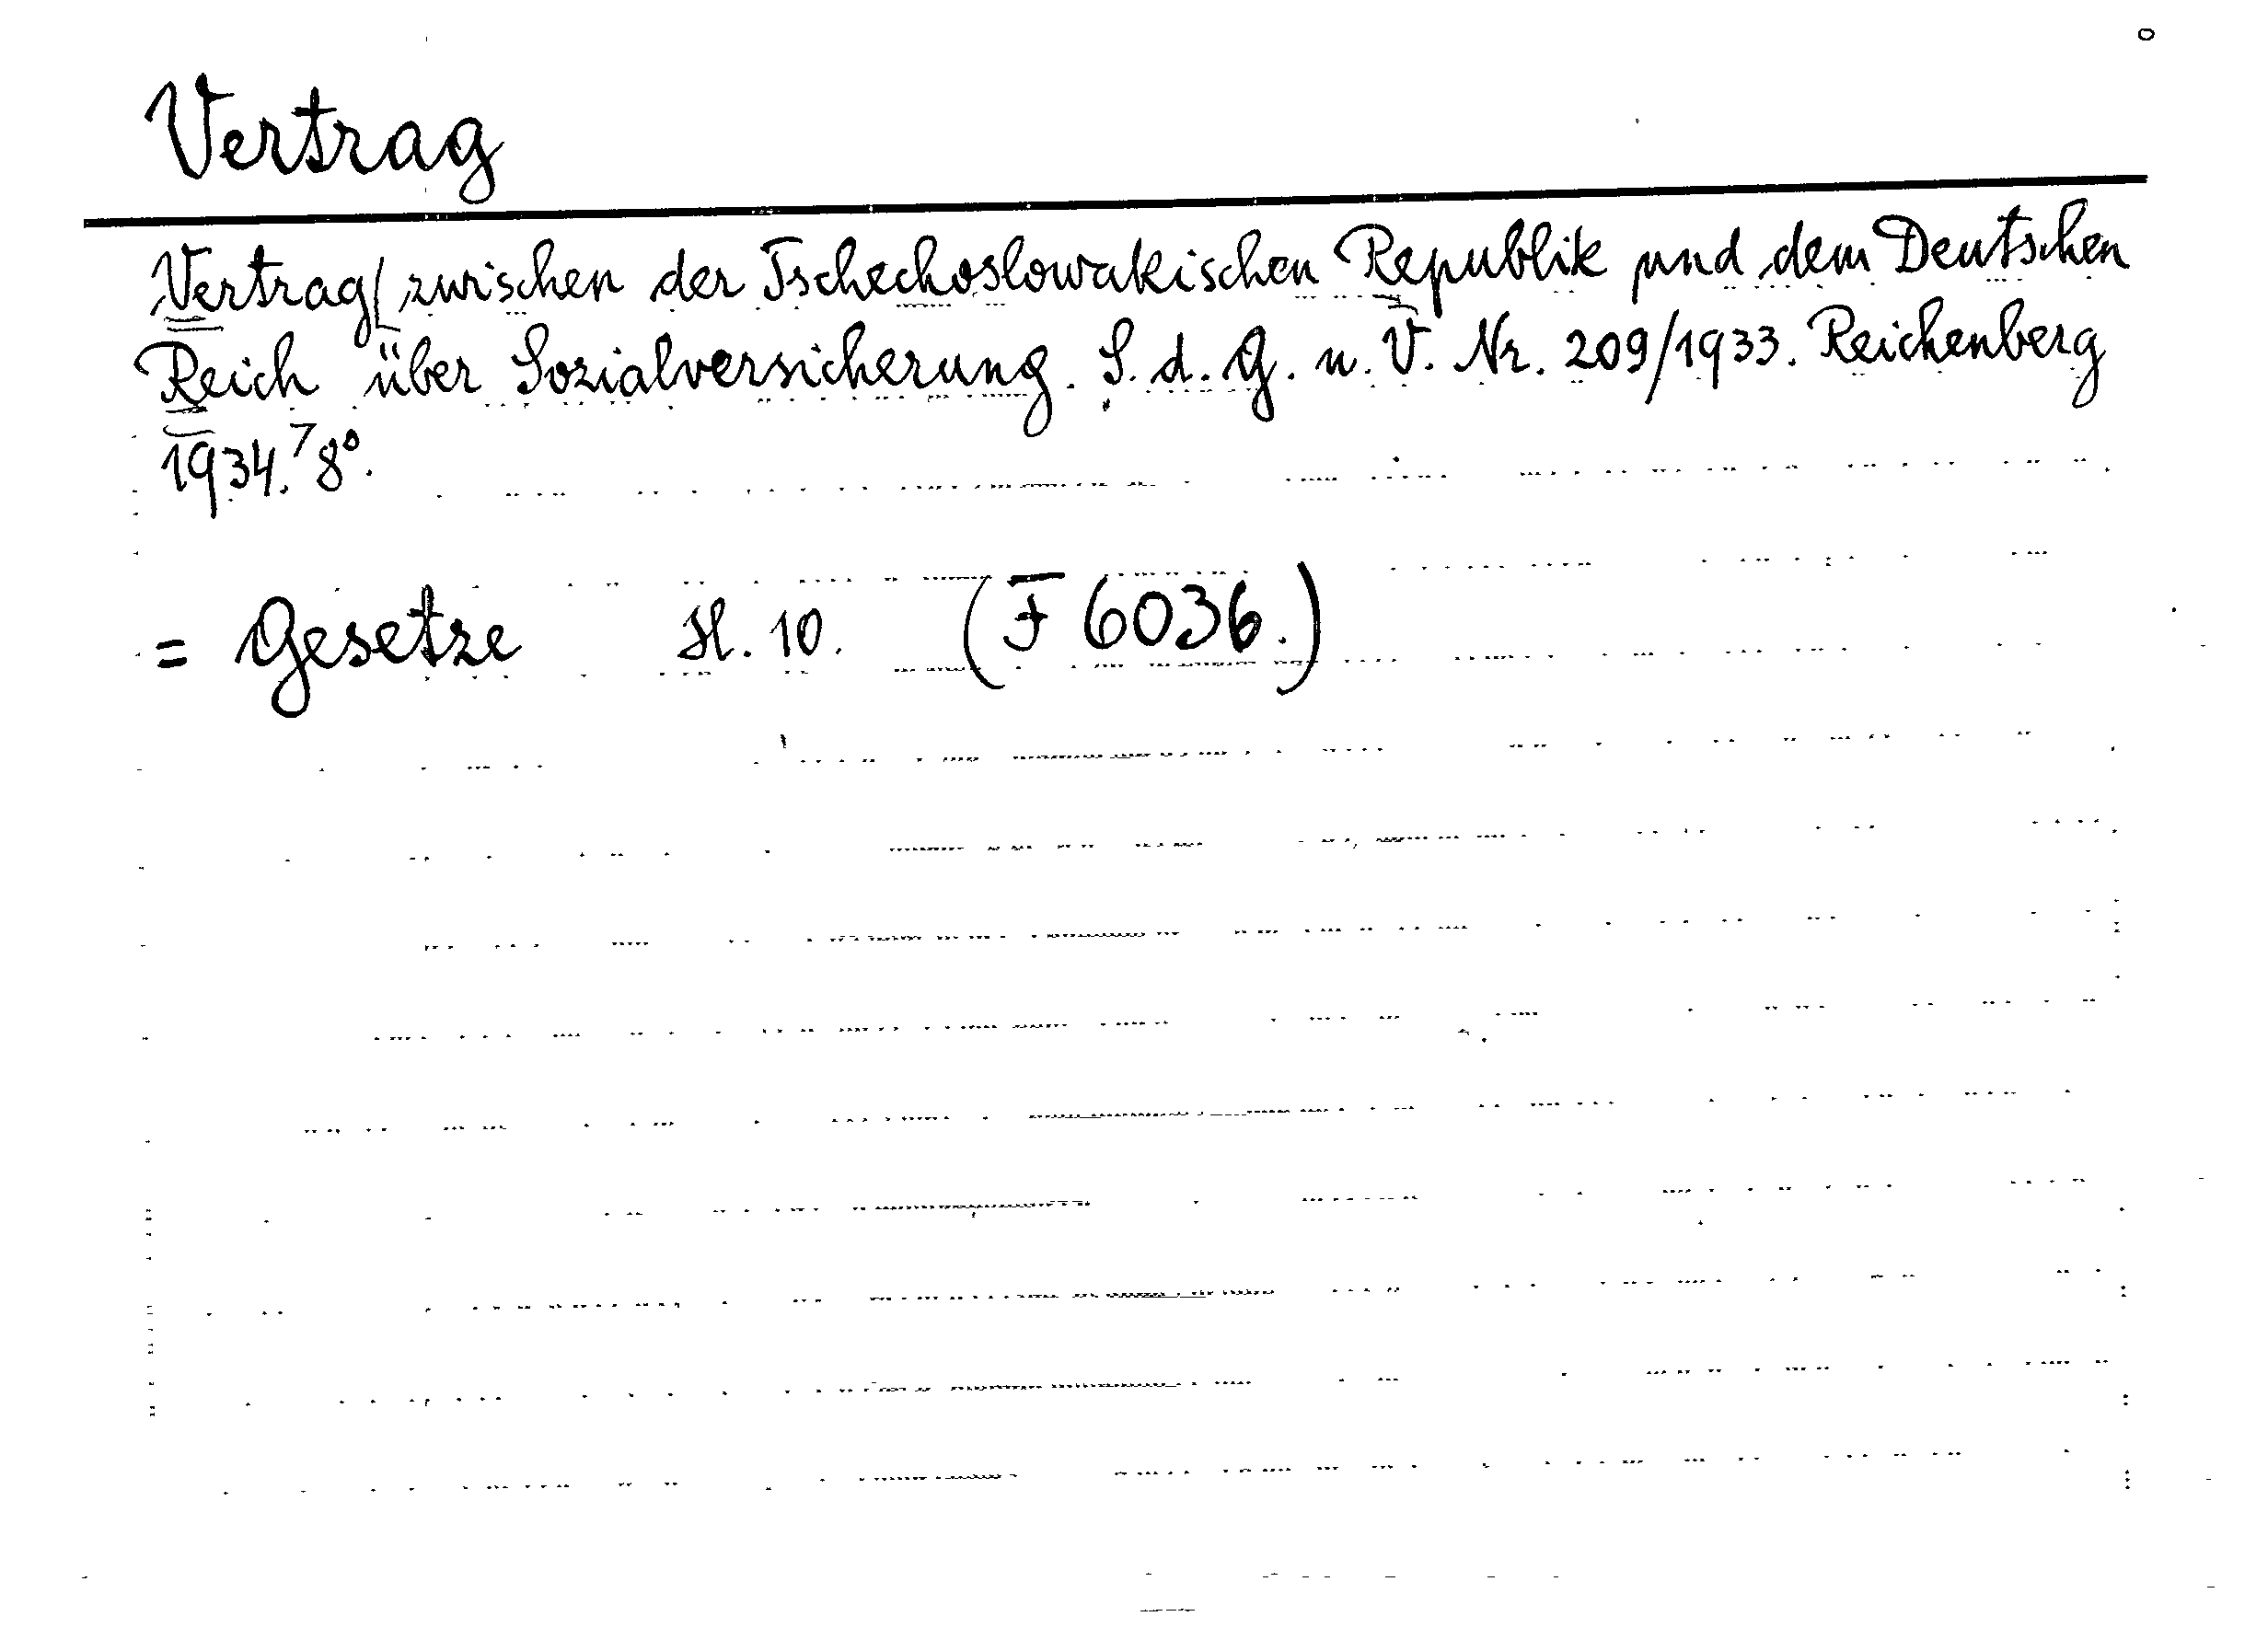 Vertrag
Vertrag [zwischen der Tschechoslowakischen Republik und dem Deutschen
Reich über Sozialversicherung. S. d. G. u. V. Nr. 209/1933. Reichenberg
1934. 8°.
= Gesetze H. 10. (F 6036.)